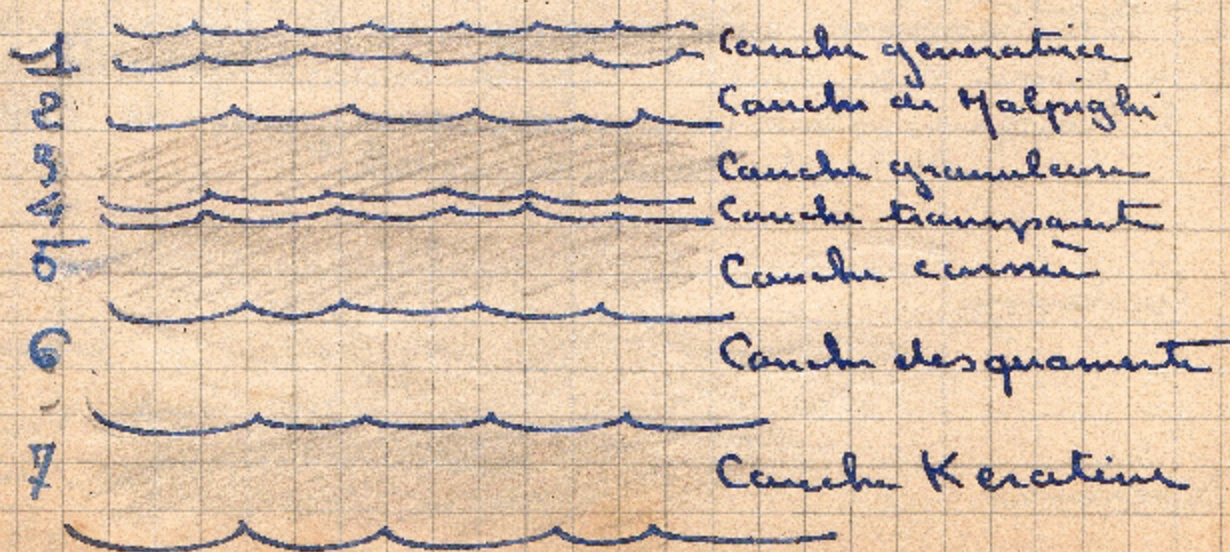 1 Couche generatrice
2 Couche de Malpighi
3 Couche granuleuse
4 Couche transparente
5 Couche cornée
6 Couche desquamente
7 Couche Keratine